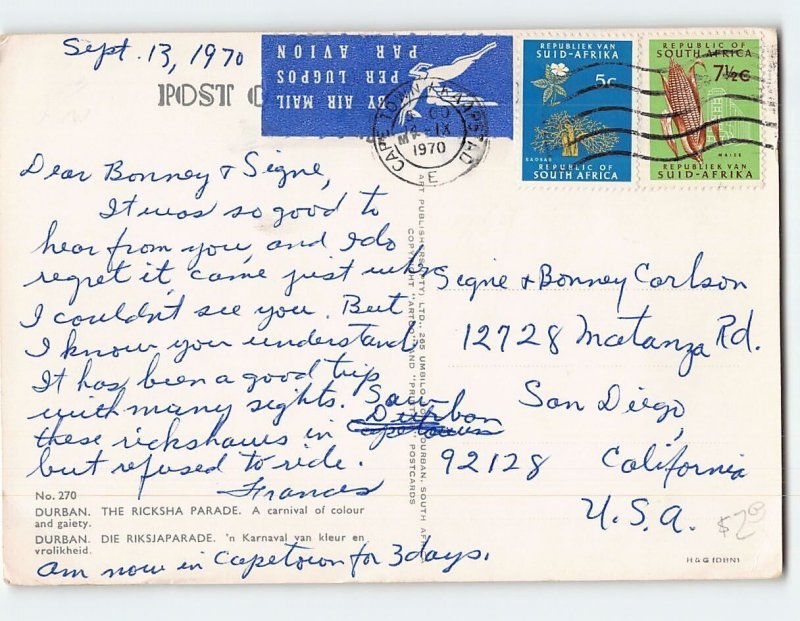 Sept. 13, 1970
POST C
BY AIR MAIL
PER LUGPOS
PAR AVION
CAPE TOWN KAAPSTAD
IX
1970
E
REPUBLIEK VAN
SUID-AFRIKA
5c
BAOBAB
REPUBLIC OF
SOUTH AFRICA
REPUBLIC OF
SOUTH AFRICA
7½c
MAIZE
REPUBLIEK VAN
SUID-AFRIKA
Dear Bonney & Signe,
It was so good to
hear from you, and I do
regret it came just when
I couldn't see you. But
I know you understand
It has been a good trip
with many sights. Saw
these rickshaws in Capetown Durban
but refused to ride.
Frances
No. 270
DURBAN. THE RICKSHA PARADE. A carnival of colour
and gaiety.
DURBAN. DIE RIKSJAPARADE. 'n Karnaval van kleur en
vrolikheid.
am now in Capetown for 3 days.
ART PUBLISHERS (PTY) LTD., 265 UMBILO ROAD, DURBAN, SOUTH AFRICA
COPYRIGHT "ARTCO" AND "PROTEA" POSTCARDS
Signe & Bonney Carlson
12728 Matanza Rd.
San Diego,
92128 California
U.S.A.
H & G (DBN)